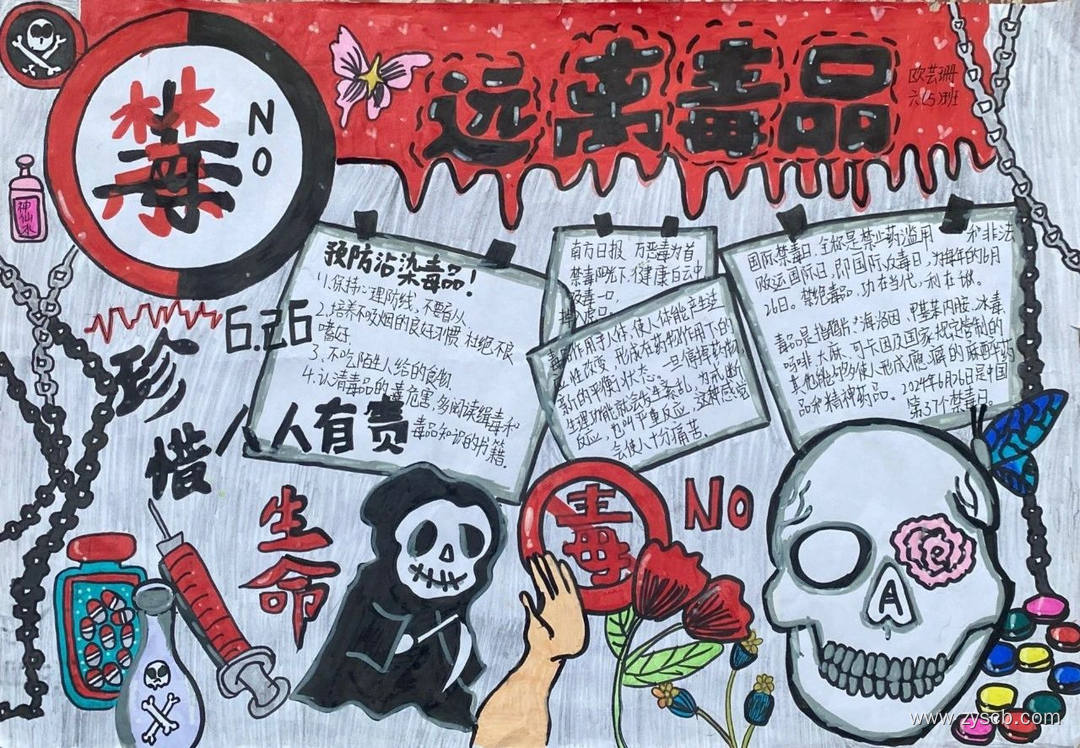 远离毒品
六(5)班
禁毒
NO
神仙水
6.26
珍惜
生命
人人有责
预防沾染毒品!
1.保持心理防线,不盲从.
2.培养不吸烟的良好习惯,杜绝不良
嗜好.
3.不吃陌生人给的食物.
4.认清毒品的毒危害,多阅读缉毒和
毒品知识的书籍.
南方日报 万恶毒为首
禁毒阳光下,健康
吸毒一口,
作用于人体,使人体能产生适
应性改变,形成在药物作用下的
新的平衡状态.一旦停掉药物,
生理功能就会发生紊乱,
反应,也叫 重反应,这种感觉
会使人十分痛苦.
国际禁毒日,全称是禁止药滥用 和非法
贩运国际日,即国际反毒日,为每年的6月
26日。禁绝毒品,功在当代,利在
毒品是指鸦片、海洛因、甲基苯丙胺、冰毒
吗啡、大麻、可卡因及国家规定管制的
其他能够使人形成瘾癖的麻醉药
品和精神药品。2024年6月26日是中国
第37个禁毒日。
毒
NO
A
www.zyscb.com